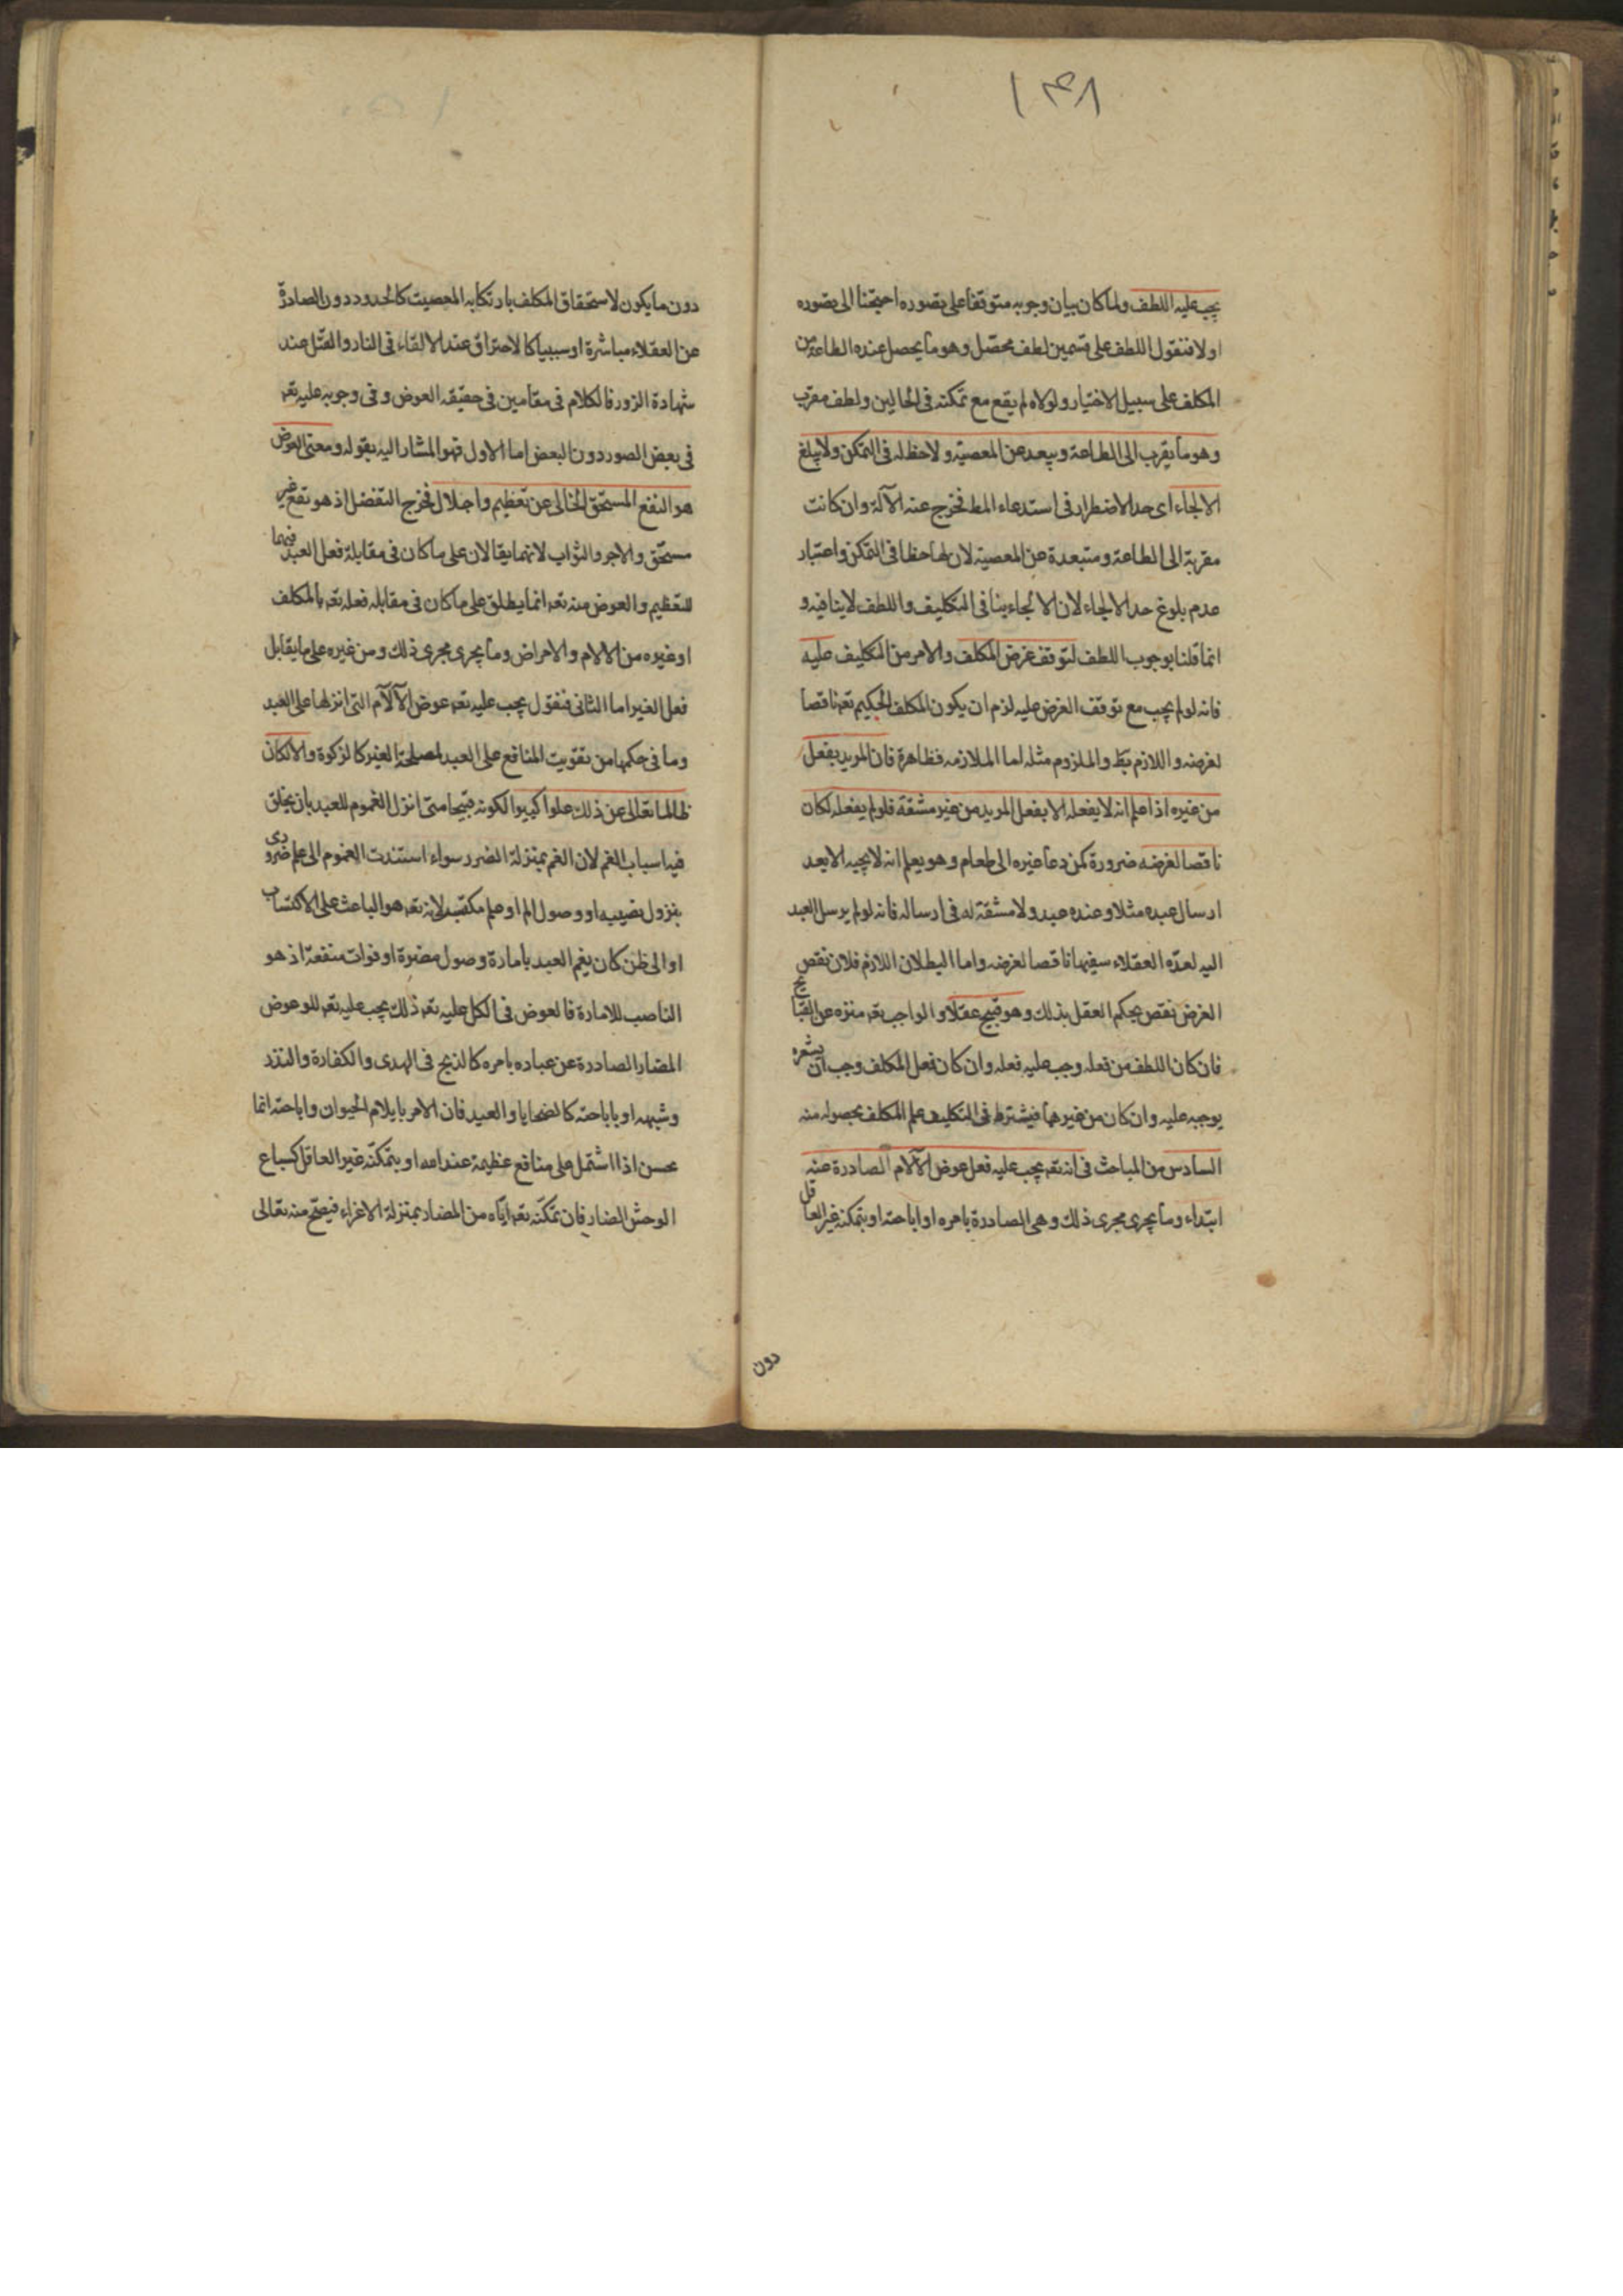 ١٤٨
يجب عليه اللطف ولما كان بيان وجوبه متوقفا على تصوره احتجنا الى تصوره
اولا فنقول اللطف على قسمين لطف محصل وهو ما يحصل عنده الطاعة من
المكلف على سبيل الاختيار ولولاه لم يقع مع تمكنه فى الحالين ولطف مقرب
وهو ما يقرب الى الطاعة ويبعد عن المعصية ولا حظ له فى التمكن ولا يبلغ
الالجاء اى حد الاضطرار فى استدعاء المط فخرج عنه الآلة وان كانت
مقربة الى الطاعة ومتبعدة عن المعصية لان لها حظا فى التمكن واعتبار
عدم بلوغ حد الالجاء لان الالجاء ينافى التكليف واللطف لا ينافيه و
انما قلنا بوجوب اللطف لتوقف غرض المكلف والامر من التكليف عليه
فانه لو لم يجب مع توقف الغرض عليه لزم ان يكون المكلف الحكيم تعه ناقصا
لغرضه واللازم بط والملزوم مثله اما الملازمه فظاهرة فان المريد بفعل
من غيره اذا علم انه لا يفعله الا بفعل المريد من غير مشقة فلو لم يفعله لكان
ناقصا لغرضه ضرورة كمن دعا غيره الى طعام وهو يعلم انه لا يجيبه الا بعد
ارسال عبده مثلا وعنده عبد ولا مشقة له فى ارساله فانه لو لم يرسل العبد
اليه لعده العقلاء سفيها ناقصا لغرضه واما البطلان اللازم فلان نقص
الغرض نقص يحكم العقل بذلك وهو قبيح عقلا والواجب تعه منزه عن القبايح
فان كان اللطف من فعله وجب عليه فعله وان كان فعل المكلف وجب ان يشعره
يوجبه عليه وان كان من غيرهما فيشترط فى التكليف علم المكلف بحصوله منه
السادس من المباحث فى انه تعه يجب عليه فعل عوض الآلام الصادرة عنه
ابتداء وما يجرى مجرى ذلك وهى الصادرة بامره او اباحته او بتمكنه غير العاقل
دون
دون ما يكون لاستحقاق المكلف بارتكابه المعصيت كالحدود دون الصادرة
عن العقلاء مباشرة او سببيا كالاحتراق عند الالقاء فى النار والقتل عند
شهادة الزور فالكلام فى مقامين فى حقيقه العوض وفى وجوبه عليه تعه
فى بعض الصور دون البعض اما الاول فهو المشار اليه بقوله ومعنى العوض
هو النفع المستحق الخالى عن تعظيم واجلال فخرج التفضل اذ هو نفع غير
مستحق والاجر والثواب لانهما يقالان على ما كان فى مقابلة فعل العبد فيهما
للتعظيم والعوض منه تعه انما يطلق على ما كان فى مقابله فعله تعه بالمكلف
او غيره من الالام والامراض وما يجرى مجرى ذلك ومن غيره على ما يقابل
فعل الغير اما الثانى فنقول يجب عليه تعه عوض الآلآم التى انزلها على العبد
وما فى حكمها من تفويت المنافع على العبد لمصلحة الغير كالزكوة والا لكان
ظالما تعالى عن ذلك علوا كبيرا لكونه قبيحا متى انزل الغموم للعبد بان يخلق
فيه اسباب الغم لان الغم بمنزلة الضرر سواء استندت الغموم الى علم ضرورى
بنزول نصيبه او وصول الم او علم مكتسب لانه تعه هو الباعث على الاكتساب
او الى ظن كان يغم العبد بامارة وصول مضرة او فوات منفعة اذ هو
الناصب للامارة فالعوض فى الكل عليه تعه ذلك يجب عليه تعه للوعوض
المضار الصادرة عن عباده بامره كالذبح فى الهدى والكفارة والنذر
وشبهه او باباحته كالضحايا والعيد فان الامر بايلام الحيوان واباحته انما
يحسن اذا اشتمل على منافع عظيمة عندامه او بتمكنه غير العاقل كسباع
الوحش الضار فان تمكنه تعه اياه من المضار بمنزلة الاغراء فيصح منه تعالى